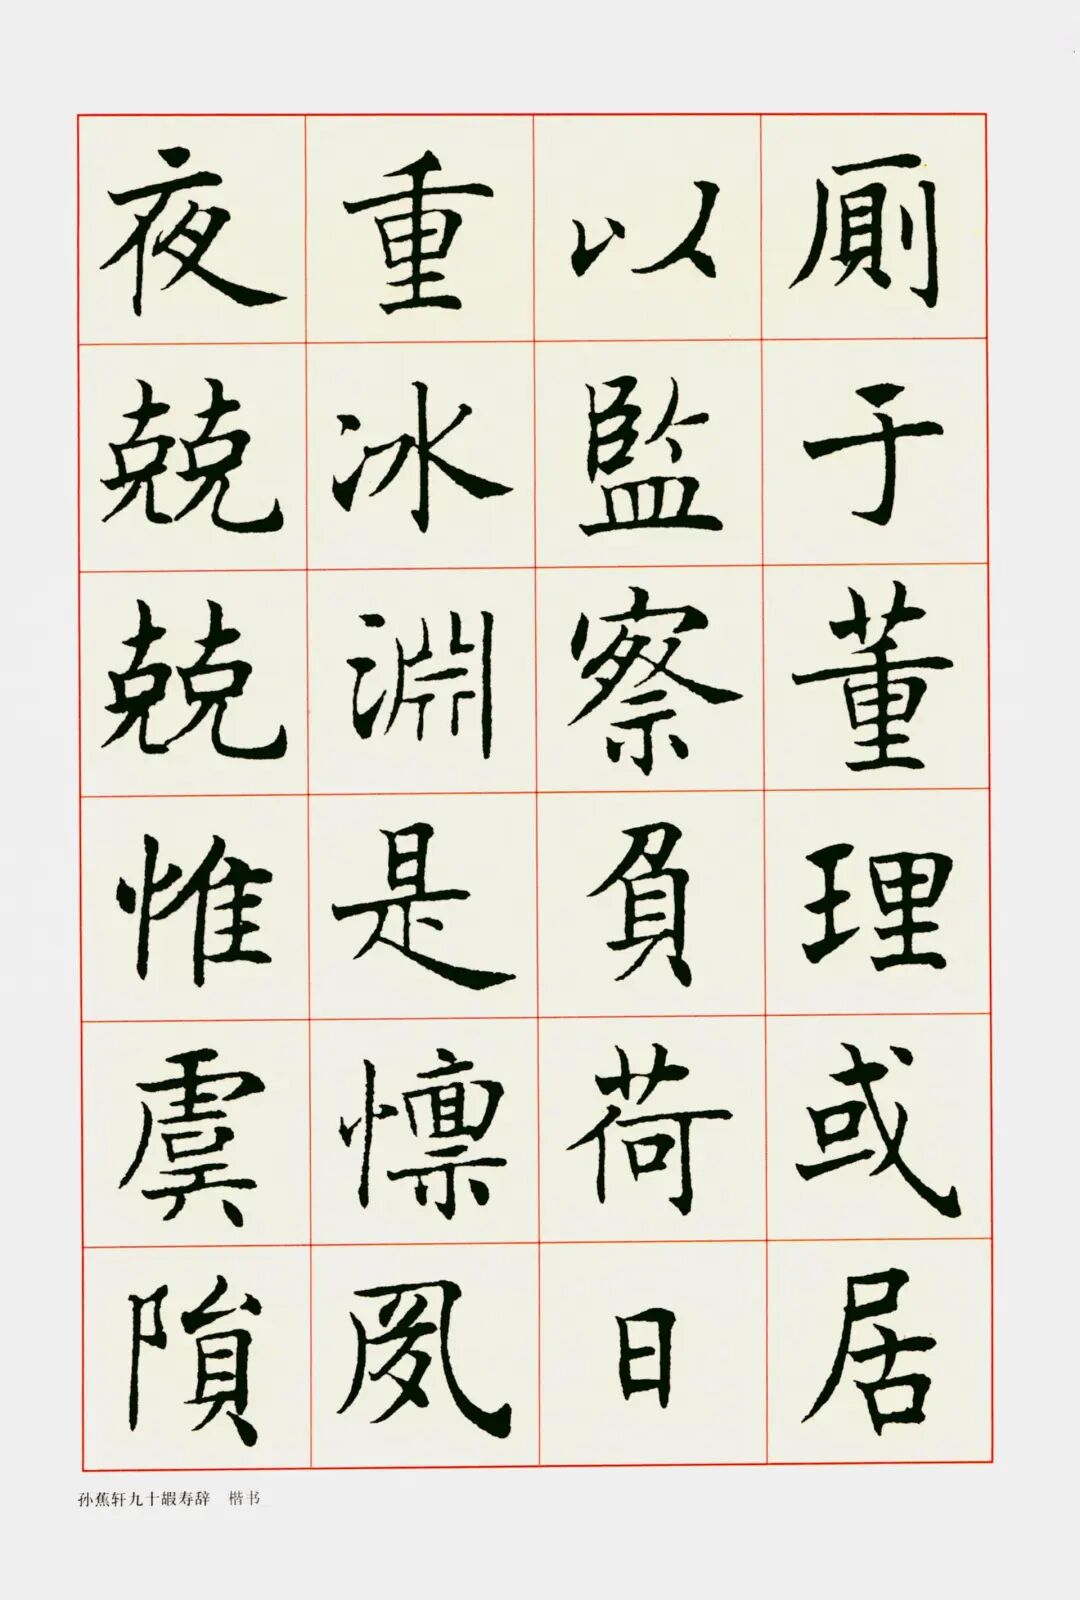 厠于董理或居
以監察負荷日
重冰淵是懍夙
夜兢兢惟虞隕
孙蕉轩九十嘏寿辞 楷书